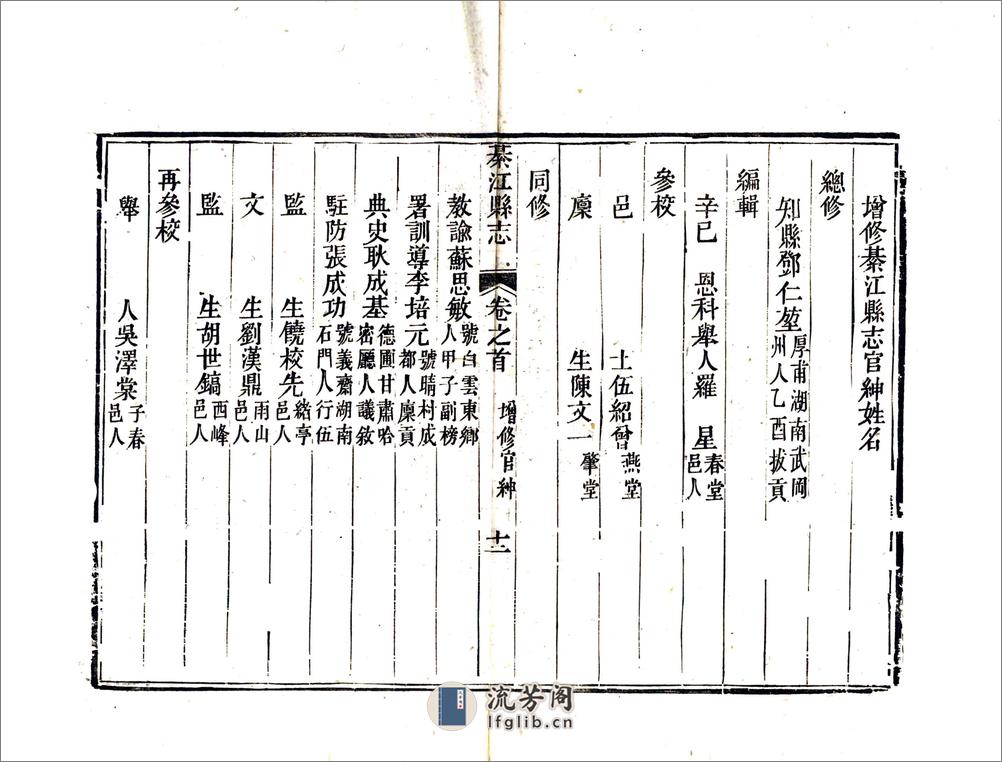 增修綦江縣志官紳姓名
總修
知縣鄧仁堃厚甫湖南武岡州人乙酉拔貢
編輯
辛巳 恩科舉人羅 星春堂邑人
參校
邑 士伍紹曾燕堂
廩 生陳文一肇堂
同修
綦江縣志 卷之首 增修官紳 十二
教諭蘇思敏號白雲東鄉人甲子副榜
署訓導李培元號晴村成都人廩貢
典史耿成基德圃甘肅哈密廳人議敘
駐防張成功號義齋湖南石門人行伍
監 生饒校先緒亭邑人
文 生劉漢鼎雨山邑人
監 生胡世鎬西峰邑人
再參校
舉 人吳澤棠子春邑人
流芳阁
lfglib.cn